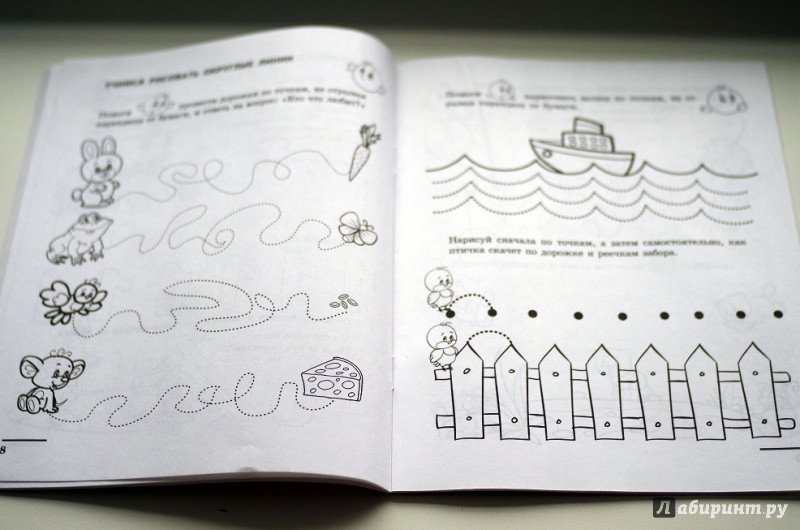 УЧИМСЯ РИСОВАТЬ ОКРУГЛЫЕ ЛИНИИ
Помоги провести дорожки по точкам, не отрывая
карандаша от бумаги, и ответь на вопрос: «Кто что любит?»
8
Помоги нарисовать волны по точкам, не от-
рывая карандаш от бумаги.
Нарисуй сначала по точкам, а затем самостоятельно, как
птичка скачет по дорожке и реечкам забора.
Лабиринт.ру